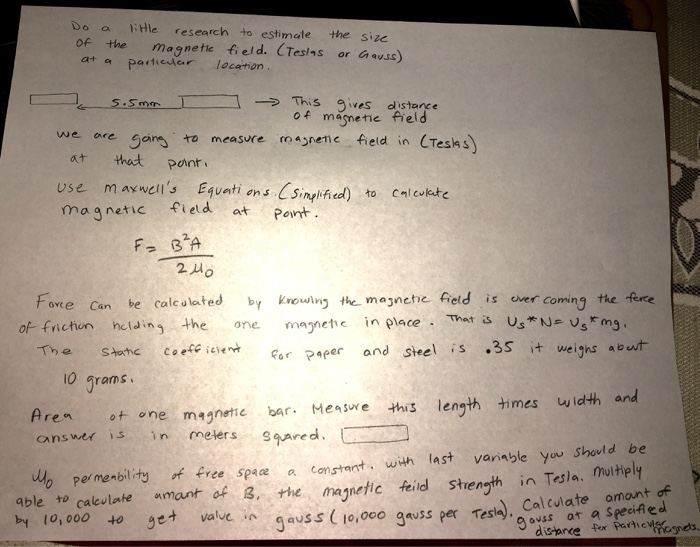 Do a little research to estimate the size
of the magnetic field. (Teslas or Gauss)
at a particular location.
5.5mm → This gives distance
of magnetic field
we are going to measure magnetic field in (Teslas)
at that point.
Use maxwell's Equations (Simplified) to calculate
magnetic field at point.
F = B²A
2 μ₀
Force can be calculated by knowing the magnetic field is over coming the force
of friction holding the one magnetic in place. That is Us*N=Us*mg.
The static coefficient for paper and steel is .35 it weighs about
10 grams.
Area of one magnetic bar. Measure this length times width and
answer is in meters squared.
μ₀ permenbility of free space a constant. with last variable you should be
able to calculate amant of B, the magnetic feild strength in Tesla. Multiply
by 10,000 to get value in gauss (10,000 gauss per Tesla). Calculate amount of
gauss at a specified
distance for particular magnets.